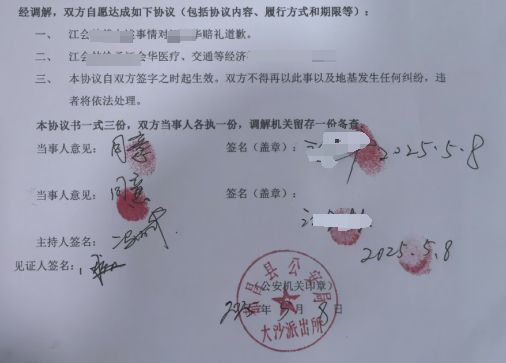 经调解，双方自愿达成如下协议（包括协议内容、履行方式和期限等）：
一、 江会 事情对 华赔礼道歉。
二、 江会 会华医疗、交通等经济
三、 本协议自双方签字之时起生效。双方不得再以此事以及地基发生任何纠纷，违
者将依法处理。
本协议书一式三份，双方当事人各执一份，调解机关留存一份备查
当事人意见：同意 签名（盖章）： 2025.5.8
当事人意见：同意 签名（盖章）：
主持人签名： 2025.5.8
见证人签名：
县公安局
（公安机关印章）
2025年5月8日
大沙派出所